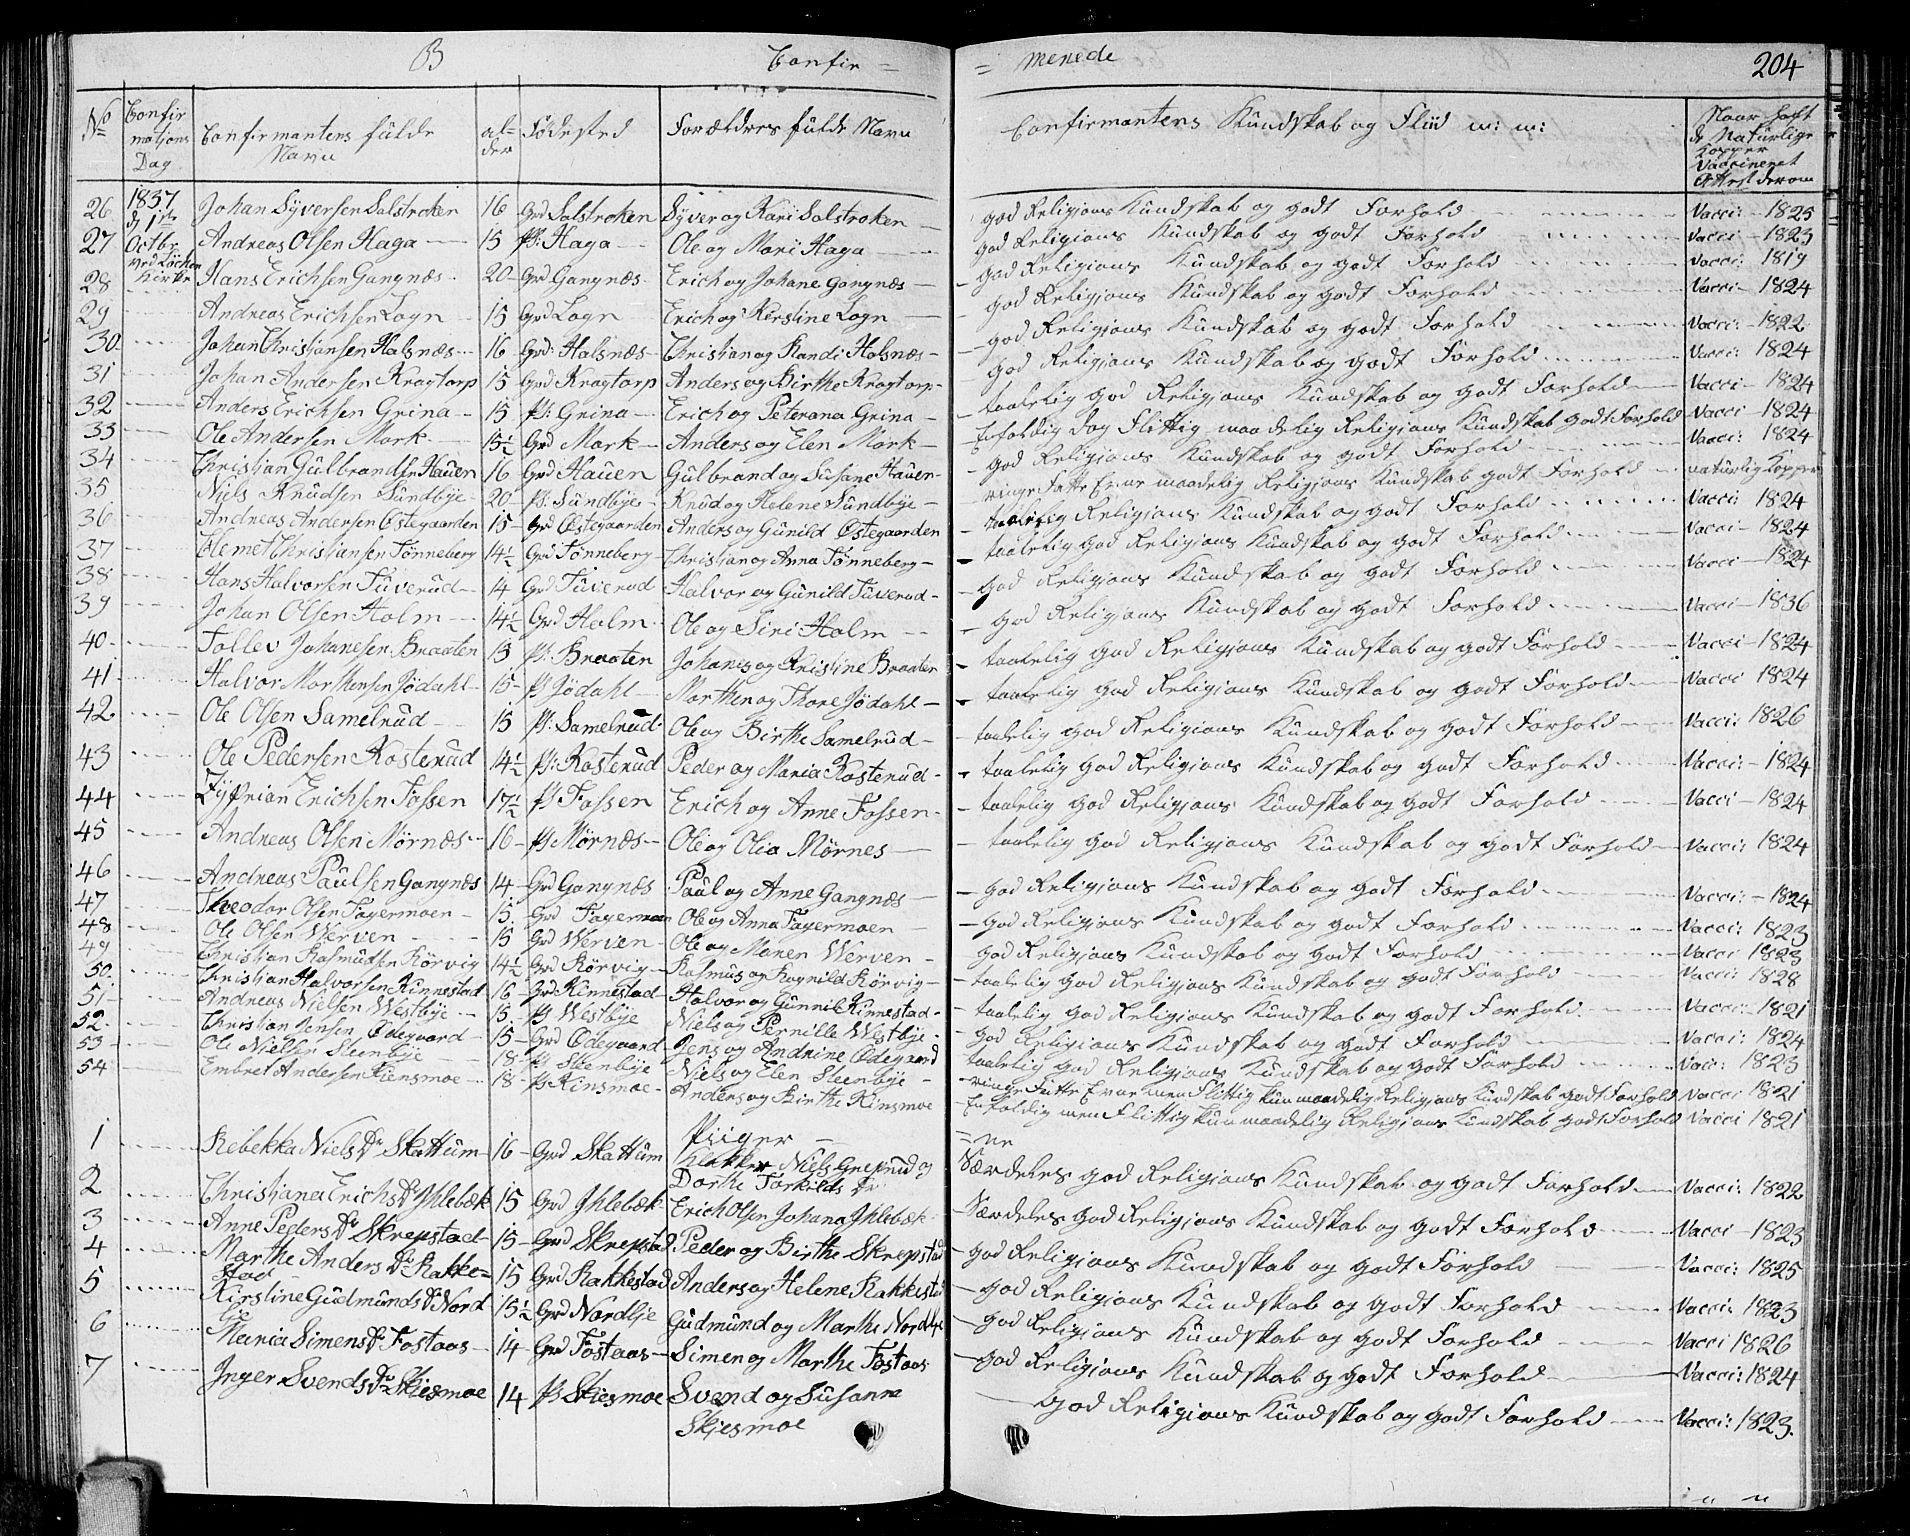 B Confir = = menede 204
No Confirmations Dag Confirmantens fulde Navn alder Fødested Forældres fulde Navn Confirmantens Kundskab og Fliid m: m: Naar haft de Naturlige Kopper Vaccineret Attest derom
1837 d. 1ste Octbr. ved Løchen Kirke
26 Johan Syversen Solstroken 16 Grd Solstroken Syver og Kari Solstroken god Religions Kundskab og godt Forhold Vacci: 1825
27 Andreas Olsen Haga 15 Pl: Haga Ole og Mari Haga god Religions Kundskab og godt Forhold Vacci 1823
28 Hans Erichsen Gangnæs 20 Grd Gangnæs Erich og Johane Gangnæs god Religions Kundskab og godt Forhold Vacci: 1819
29 Andreas Erichsen Logn 15 Grd Logn Erich og Kerstine Logn god Religions Kundskab og godt Forhold Vacci 1824
30 Johan Christiansen Halsnæs 16 Grd: Halsnæs Christian og Randi Halsnæs god Religions Kundskab og godt Forhold Vacci: 1822
31 Johan Andersen Kragtorp 15 Grd Kragtorp Anders og Birthe Kragtorp god Religions Kundskab og godt Forhold Vacci: 1824
32 Anders Erichsen Grina 15 Pl: Grina Erich og Peterana Grina taalelig god Religions Kundskab og godt Forhold Vacci 1824
33 Ole Andersen Mork 15½ Grd Mork Anders og Elen Mork Enfoldig dog Flittig maadelig Religions Kundskab godt Forhold Vacci 1824
34 Christian Gulbrandsen Hauer 16 Grd Hauer Gulbrand og Susane Hauer god Religions Kundskab og godt Forhold Vacci: 1824
35 Niels Knudsen Sundbye 20 Pl: Sundbye Knud og Helene Sundbye ringe Fatte Evne maadelig Religions Kundskab godt Forhold naturlig Kopper
36 Andreas Andersen Østegaarden 15 Grd Østegaarden Anders og Gunild Østegaarden taalelig Religions Kundskab og godt Forhold Vacci: 1824
37 Clemet Christiansen Tønneberg 14½ Grd Tønneberg Christian og Anna Tønneberg taalelig god Religions Kundskab og godt Forhold Vacci 1824
38 Hans Halvorsen Tuverud 14 Grd Tuverud Halvor og Gunild Tuverud god Religions Kundskab og godt Forhold Vacci 1824
39 Johan Olsen Holm 14½ Grd Holm Ole og Siri Holm god Religions Kundskab og godt Forhold Vacci 1836
40 Tollev Johanesen Braaten 15 Pl: Braaten Johanes og Kristine Braaten taalelig god Religions Kundskab og godt Forhold Vacci 1824
41 Halvor Morthensen Jødahl 15 Pl Jødahl Morthen og Thore Jødahl taalelig god Religions Kundskab og godt Forhold Vacci 1824
42 Ole Olsen Samelrud 15 Pl: Samelrud Ole og Birthe Samelrud taalelig god Religions Kundskab og godt Forhold Vacci: 1826
43 Ole Pedersen Kosterud 14½ Pl: Kosterud Peder og Maria Kosterud taalelig god Religions Kundskab og godt Forhold Vacci: 1824
44 Zyprian Erichsen Fossen 17½ Pl Fossen Erich og Anne Fossen taalelig god Religions Kundskab og godt Forhold Vacci 1824
45 Andreas Olsen Mørnæs 16 Pl Mørnæs Ole og Olea Mørnes taalelig god Religions Kundskab og godt Forhold Vacci: 1824
46 Andreas Paulsen Gangnæs 14 Grd Gangnæs Paul og Anne Gangnæs god Religions Kundskab og godt Forhold Vacci: 1824
47 Theodor Olsen Fagermoen 15 Grd Fagermoen Ole og Anna Fagermoen god Religions Kundskab og godt Forhold Vacci: 1823
48 Ole Olsen Werven 15 Grd Werven Ole og Maren Werven god Religions Kundskab og godt Forhold Vacci 1823
49 Christian Rasmusen Kørvig 14½ Grd Kørvig Rasmus og Ragnild Kørvig taalelig god Religions Kundskab og godt Forhold Vacci: 1828
50 Christian Halvorsen Kinnestad 16 Grd Kinnestad Halvor og Gunnil Kinnestad taalelig god Religions Kundskab og godt Forhold Vacci 1821
51 Andreas Nielsen Westbye 15 Pl Westbye Niels og Pernille Westbye god Religions Kundskab og godt Forhold Vacci: 1824
52 Christian Jensen Ødegaard 15 Grd Ødegaard Jens og Andrine Ødegaard taalelig god Religions Kundskab og godt Forhold Vacc: 1823
53 Ole Nielsen Steenbye 18 Pl Steenbye Niels og Elen Steenbye ringe Fatte Evne men Flittig kun maadelig Religions Kundskab godt Forhold Vacci 1821
54 Embret Andersen Kinsmoe 18 Pl Kinsmoe Anders og Birthe Kinsmoe Enfoldig men Flittig kun maadelig Religions Kundskab godt Forhold Vacci 1821
Piiger = ne
1 Rebekka Niels Dr Skattum 16 Grd Skattum Klokker Niels Greprud og Dorthe Torkilds Dr Særdeles god Religions Kundskab og godt Forhold Vacci: 1822
2 Christiana Erichs Dr Ihlebæk 15 Grd Ihlebæk Erich Olsen Johana Ihlebæk Særdeles god Religions Kundskab og godt Forhold Vacci 1823
3 Anne Peders Dr Skrepstad 15 Grd Skrepstad Peder og Birthe Skrepstad god Religions Kundskab og godt Forhold Vacci: 1825
4 Marthe Anders Dr Rakkestad 15 Grd Rakkestad Anders og Helene Rakkestad god Religions Kundskab og godt Forhold Vacci: 1823
5 Kirstine Gudmunds Dr Nord 15½ Grd Nordbye Gudmund og Marthe Nordbye god Religions Kundskab og godt Forhold Vacci 1826
6 Maria Simens Dr Fostaas 14 Grd Fostaas Simen og Marthe Fostaas god Religions Kundskab og godt Forhold Vacci: 1824
7 Inger Svends Dr Skiesmoe 14 Pl Skiesmoe Svend og Susanne Skjesmoe god Religions Kundskab og godt Forhold Vacci: 1823.